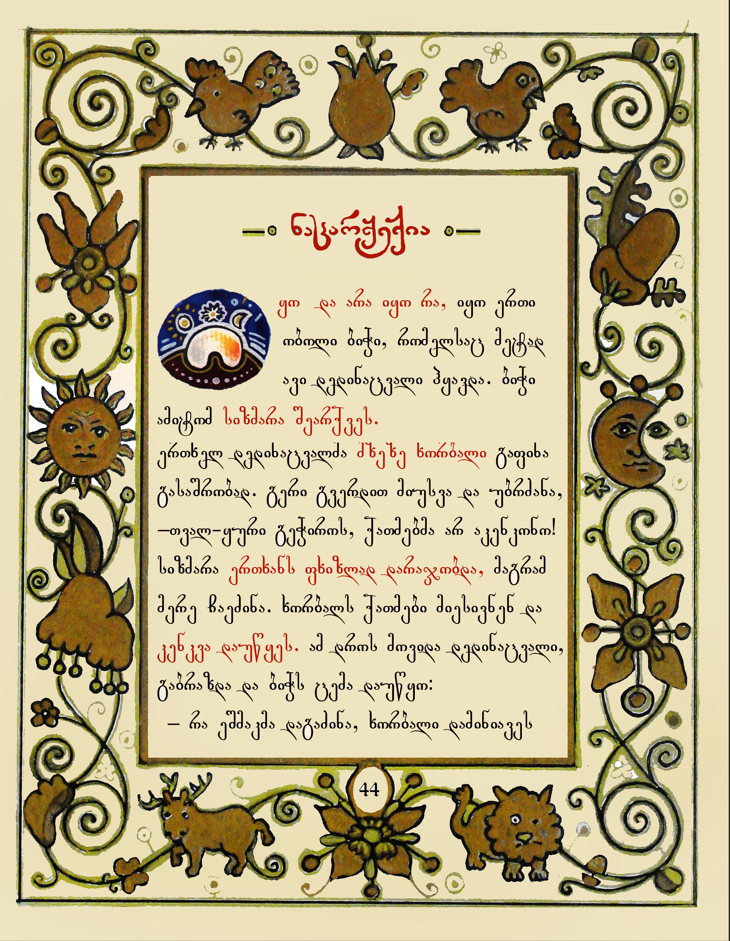 ნაცარქექია
იყო და არა იყო რა, იყო ერთი
ობოლი ბიჭი, რომელსაც მეტად
ავი დედინაცვალი ჰყავდა. ბიჭი
ამიტომ სიზმარა შეარქვეს.
ერთხელ დედინაცვალმა მზეზე ხორბალი გაფინა
გასაშრობად. გერი გვერდით მოუსვა და უბრძანა,
–თვალ-ყური გეჭიროს, ქათმებმა არ აკენკონო!
სიზმარა ერთხანს ფხიზლად დარაჯობდა, მაგრამ
მერე ჩაეძინა. ხორბალს ქათმები მიესივნენ და
კენკვა დაუწყეს. ამ დროს მოვიდა დედინაცვალი,
გაბრაზდა და ბიჭს ცემა დაუწყო:
– რა ეშმაკმა დაგაძინა, ხორბალი დამინიავეს
44